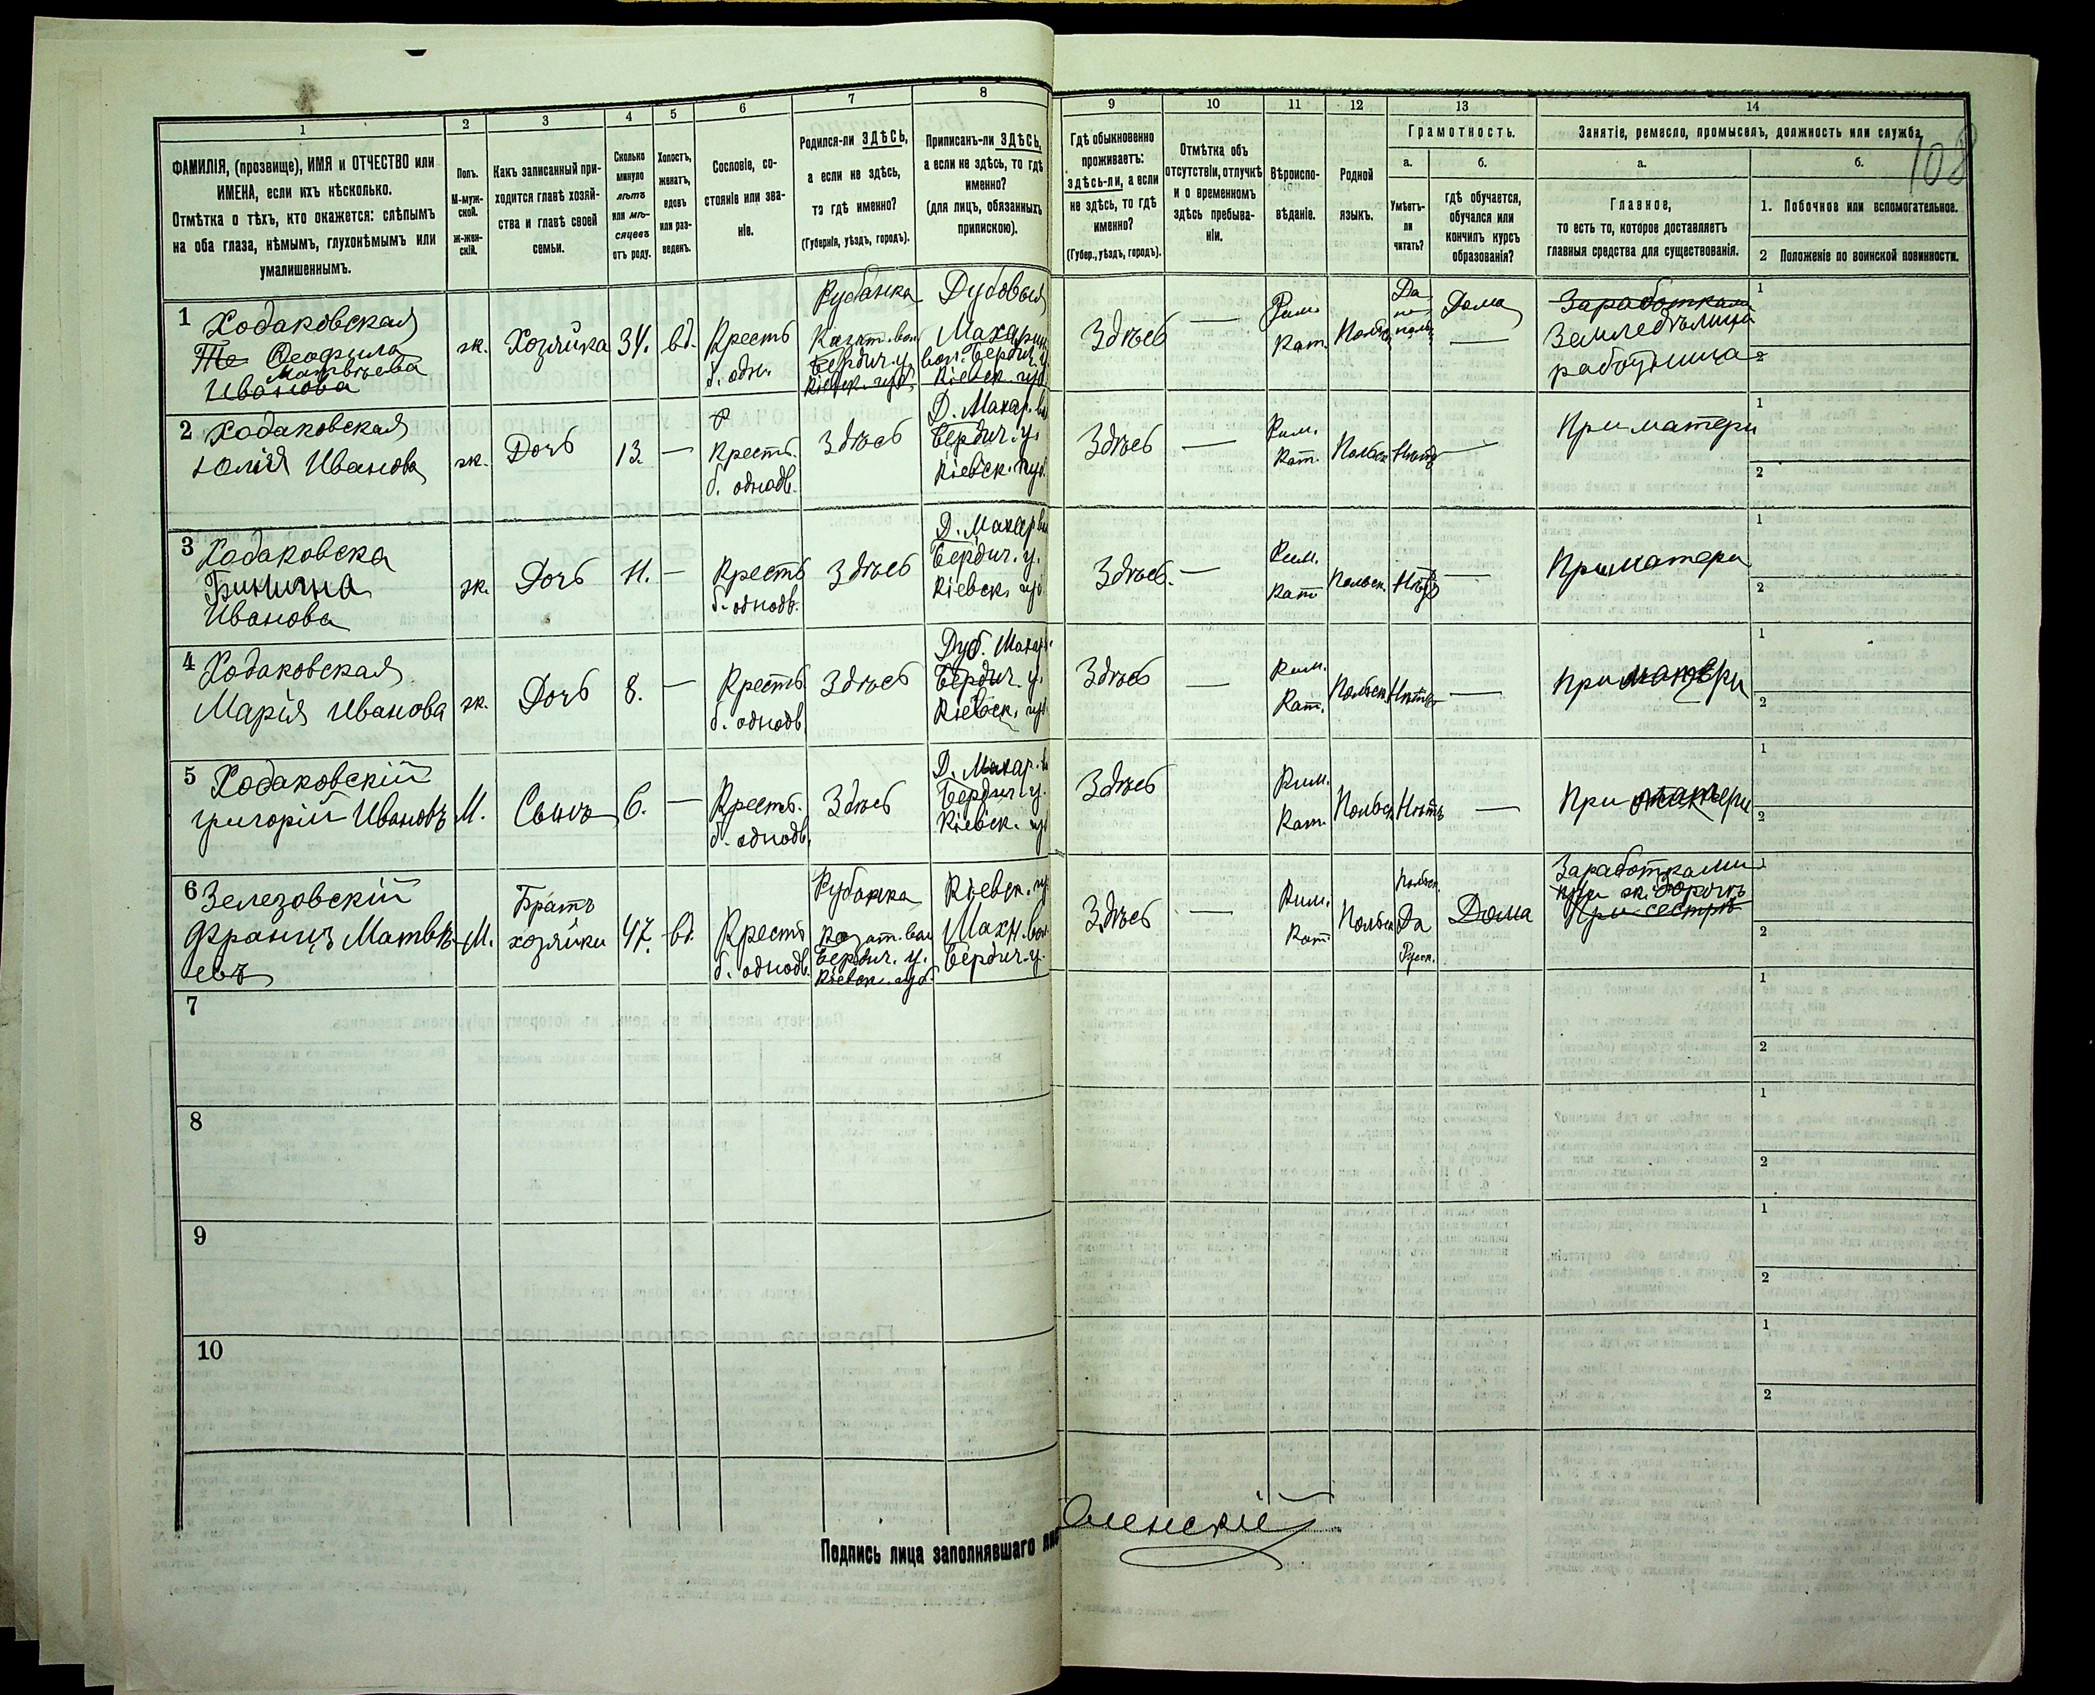 108
1
2
3
4
5
6
7
8
9
10
11
12
13
14
ФАМИЛІЯ, (прозвище), ИМЯ и ОТЧЕСТВО или
ИМЕНА, если ихъ нѣсколько.
Отмѣтка о тѣхъ, кто окажется: слѣпымъ
на оба глаза, нѣмымъ, глухонѣмымъ или
умалишеннымъ.
Полъ.
М-муж-
ской.
Ж-жен-
скій.
Какъ записанный при-
ходится главѣ хозяй-
ства и главѣ своей
семьи.
Сколько
минуло
лѣтъ
или мѣ-
сяцевъ
отъ роду.
Холостъ,
женатъ,
вдовъ
или раз-
веденъ.
Сословіе, со-
стояніе или зва-
ніе.
Родился-ли ЗДѢСЬ,
а если не здѣсь,
то гдѣ именно?
(Губернія, уѣздъ, городъ).
Приписанъ-ли ЗДѢСЬ,
а если не здѣсь, то гдѣ
именно?
(для лицъ, обязанныхъ
припискою).
Гдѣ обыкновенно
проживаетъ:
здѣсь-ли, а если
не здѣсь, то гдѣ
именно?
(Губер., уѣздъ, городъ).
Отмѣтка объ
отсутствіи, отлучкѣ
и о временномъ
здѣсь пребыва-
ніи.
Вѣроиспо-
вѣданіе.
Родной
языкъ.
Грамотность.
а.
Умѣетъ-
ли
читать?
б.
гдѣ обучается,
обучался или
кончилъ курсъ
образованія?
Занятіе, ремесло, промыселъ, должность или служба
а.
Главное,
то есть то, которое доставляетъ
главныя средства для существованія.
б.
1. Побочное или вспомогательное.
2 Положеніе по воинской повинности.
1 Ходаковская
Те Ѳеофила
Матвѣева
Иванова
ж.
Хозяйка
34.
вд.
Крестъ
б. одн.
Рубанка
Казат. вол
Бердич. у.
Кіевск. губ.
Дубовыя
Махарин
вол. Бердич. у
Кіевск. губ
Здѣсь
—
Рим.
Кат.
Польск
Да
по
польс
Дома
—
Заработками
Земледѣлица
работница
1
2
2 Ходаковская
Юлія Иванова
ж.
Дочь
13
—
Крестъ.
б. однодв.
Здѣсь
Д. Махар. в
Бердич. у.
Кіевск. губ.
Здѣсь
—
Рим.
Кат.
Польск
Нѣтъ
—
При матери
1
2
3 Ходаковска
Иванова
ж.
Дочь
11.
—
Крестъ
б. однодв.
Здѣсь
Д. Махар в
Бердич. у.
Кіевск. гу
Здѣсь.
—
Рим.
Кат
Польск.
Нѣтъ
—
При матери
1
2
4 Ходаковская
Марія Иванова
ж.
Дочь
8.
—
Крестъ
б. однодв
Здѣсь
Дуб. Махар
Бердич. у.
Кіевск. гу
Здѣсь
—
Рим.
Кат.
Польск.
Нѣтъ
—
При матери
1
2
5 Ходаковскій
Григорій Ивановъ
М.
Сынъ
6.
—
Крестъ.
б. однодв.
Здѣсь
Д. Махар. в
Бердич. у.
Кіевск. гу
Здѣсь
Рим.
Кат.
Польск
Нѣтъ
—
При матери
1
2
6 Зелезовскій
Францъ Матвѣ-
евъ
М.
Братъ
хозяйки
47.
вд.
Крестъ
б. однодв.
Рубанка
Казат. вол
Бердич. у.
Кіевск. губ.
Кіевск. гу
Махн. вол.
Бердич. у.
Здѣсь
—
Рим.
Кат
Польск
Польск.
Да
Русск.
Дома
Заработками
при
при сестрѣ
1
2
7
1
2
8
1
2
9
1
2
10
1
2
Подпись лица заполнявшаго лис